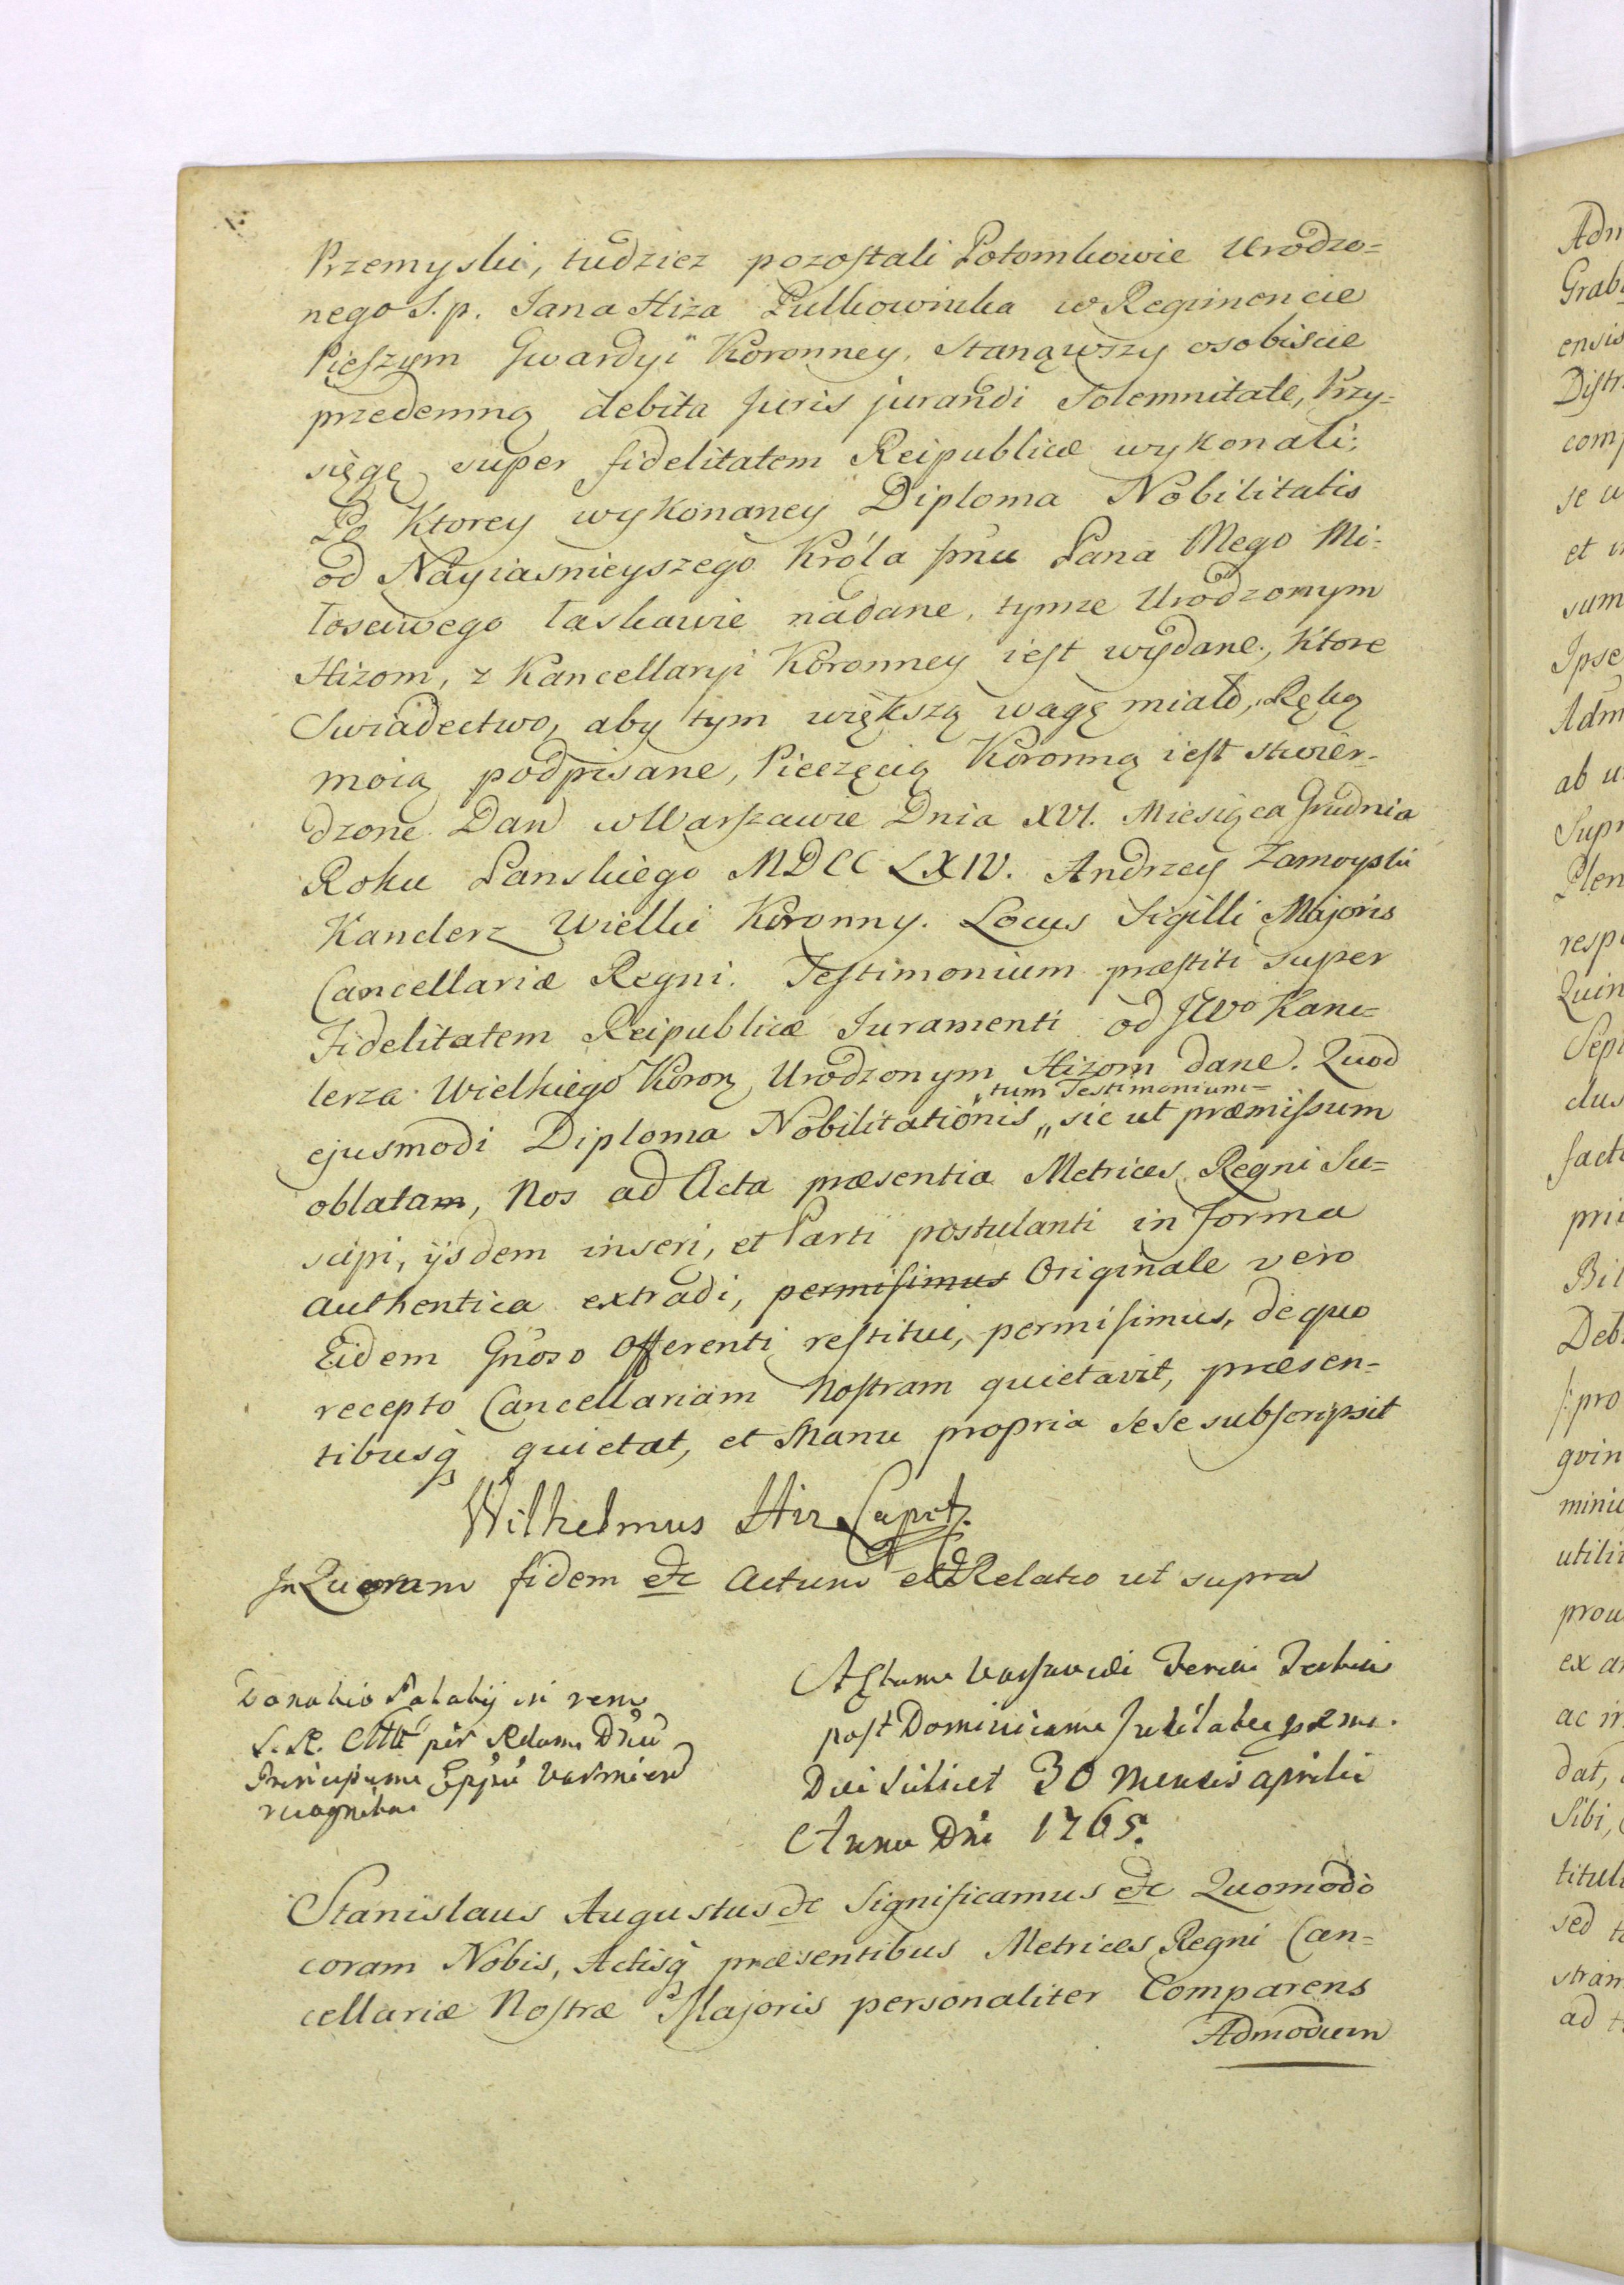 Przemyski, tudziez pozostali Potomkowie Urodzo=
nego S.p. Jana Hiza Pulkownika w Regimencie
Pieszym Gwardyi Koronney, Stanąwszy osobiscie
przedemną debita Juris jurandi Solemnitate, Przy=
sięgę super fidelitatem Reipublicæ wykonali;
Po Ktorey wykonaney Diploma Nobilitatis
od Nayiasnieyszego Króla Jmci Pana Mego Mi=
łosciwego łaskawie nadane, tymze Urodzonym
Hizom, z Kancellaryi Koronney iest wydane, Ktore
Swiadectwo, aby tym większą wagę miało, Ręką
moią podpisane, Pieczęcią Koronną iest stwier=
dzone. Dan w Warszawie Dnia XVI. Miesiąca Grudnia
Roku Panskiego MDCCLXIV. Andrzey Zamoyski
Kanclerz Wielki Koronny. Locus Sigilli Majoris
Cancellariæ Regni. Testimonium præstiti super
Fidelitatem Reipublicæ Juramenti od JWo Kanc=
lerza Wielkiego Koron Urodzonym Hizom dane. Quod
tum Testimonium=
ejusmodi Diploma Nobilitationis „ sic ut præmissum
oblatam, Nos ad Acta præsentia Metrices Regni Su=
scipi, ijsdem inseri, et Parti postulanti in Forma
authentica extradi, permisimus Originale vero
Eidem Gnoso Offerenti restitui, permisimus, de quo
recepto Cancellariam Nostram quietavit, præsen=
tibusq quietat, et Manu propria sese subscripsit
Wilhelmus Hiz Capit.
In Quorum fidem etc Actum et Relatio ut supra
Donatio Palatij in rem
S. R. Mtt per Rdum Dnu
Principum Eppu Varmien
recognita
Actum Varsaviæ Feria Tertia
post Dominicam Jubilate proxima.
Die scilicet 30 Mensis Aprilis
Anno Dni 1765.
Stanislaus Augustus etc Significamus etc Quomodò
coram Nobis, Actisq præsentibus Metrices Regni Can=
cellariæ Nostræ Majoris personaliter Comparens
Admodum